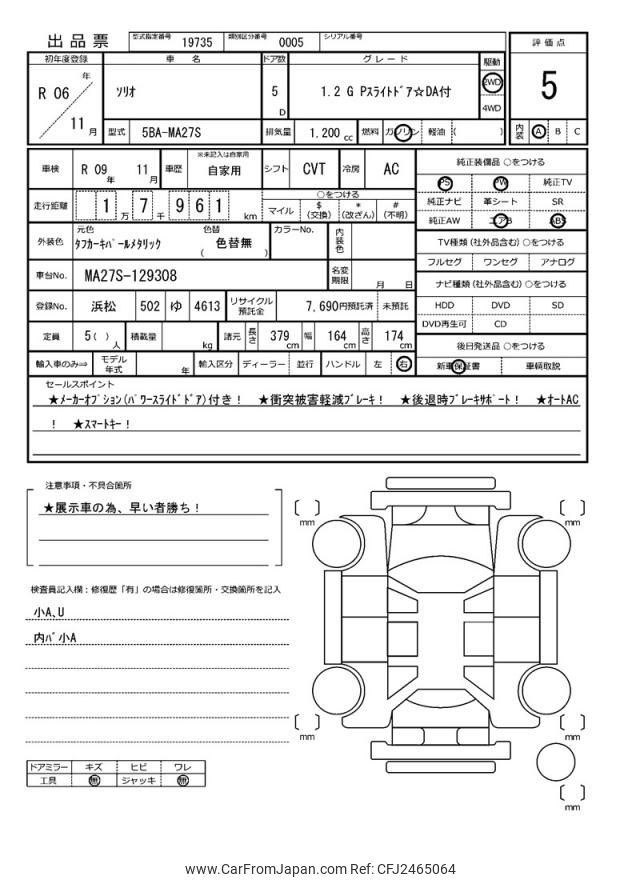 出品票 型式指定番号 19735 類別区分番号 0005 シリアル番号
初年度登録 車 名 ドア数 グレード 駆動 評価点
R 06 年 11 月 ソリオ 5 D 1.2 G Pスライトドア☆DA付 2WD 4WD 5
型式 5BA-MA27S 排気量 1.200 cc 燃料 ガソリン 軽油 ( ) 内装 A B C
車検 R 09 年 11 月 車歴 ※未記入は自家用 自家用 シフト CVT 冷房 AC 純正装備品 ○をつける
PS PW 純正TV
走行距離 1 万 7 千 9 6 1 km ○をつける マイル $ (交換) * (改ざん) # (不明) 純正ナビ 革シート SR
純正AW エアB ABS
外装色 元色 タフカーキパールメタリック 色替 ( 色替無 ) カラーNo. 内装色 TV種類 (社外品含む) ○をつける
フルセグ ワンセグ アナログ
車台No. MA27S-129308 名変期限 月 日 ナビ種類 (社外品含む) ○をつける
登録No. 浜松 502 ゆ 4613 リサイクル預託金 7,690円預託済 未預託 HDD DVD SD
DVD再生可 CD
定員 5 ( ) 人 積載量 kg 諸元 長さ 379 cm 幅 164 cm 高さ 174 cm 後日発送品 ○をつける
輸入車のみ⇨ モデル年式 年 輸入区分 ディーラー 並行 ハンドル 左 右 新車保証書 車輌取説
セールスポイント
★メーカーオプション(パワースライドドア)付き! ★衝突被害軽減ブレーキ! ★後退時ブレーキサポート! ★オートAC
! ★スマートキー!
注意事項・不具合箇所
★展示車の為、早い者勝ち!
検査員記入欄:修復歴「有」の場合は修復箇所・交換箇所を記入
小A、U
内バ小A
mm
mm
mm
mm
mm
ドアミラー キズ ヒビ ワレ
工具 無 ジャッキ 無
www.CarFromJapan.com Ref: CFJ2465064